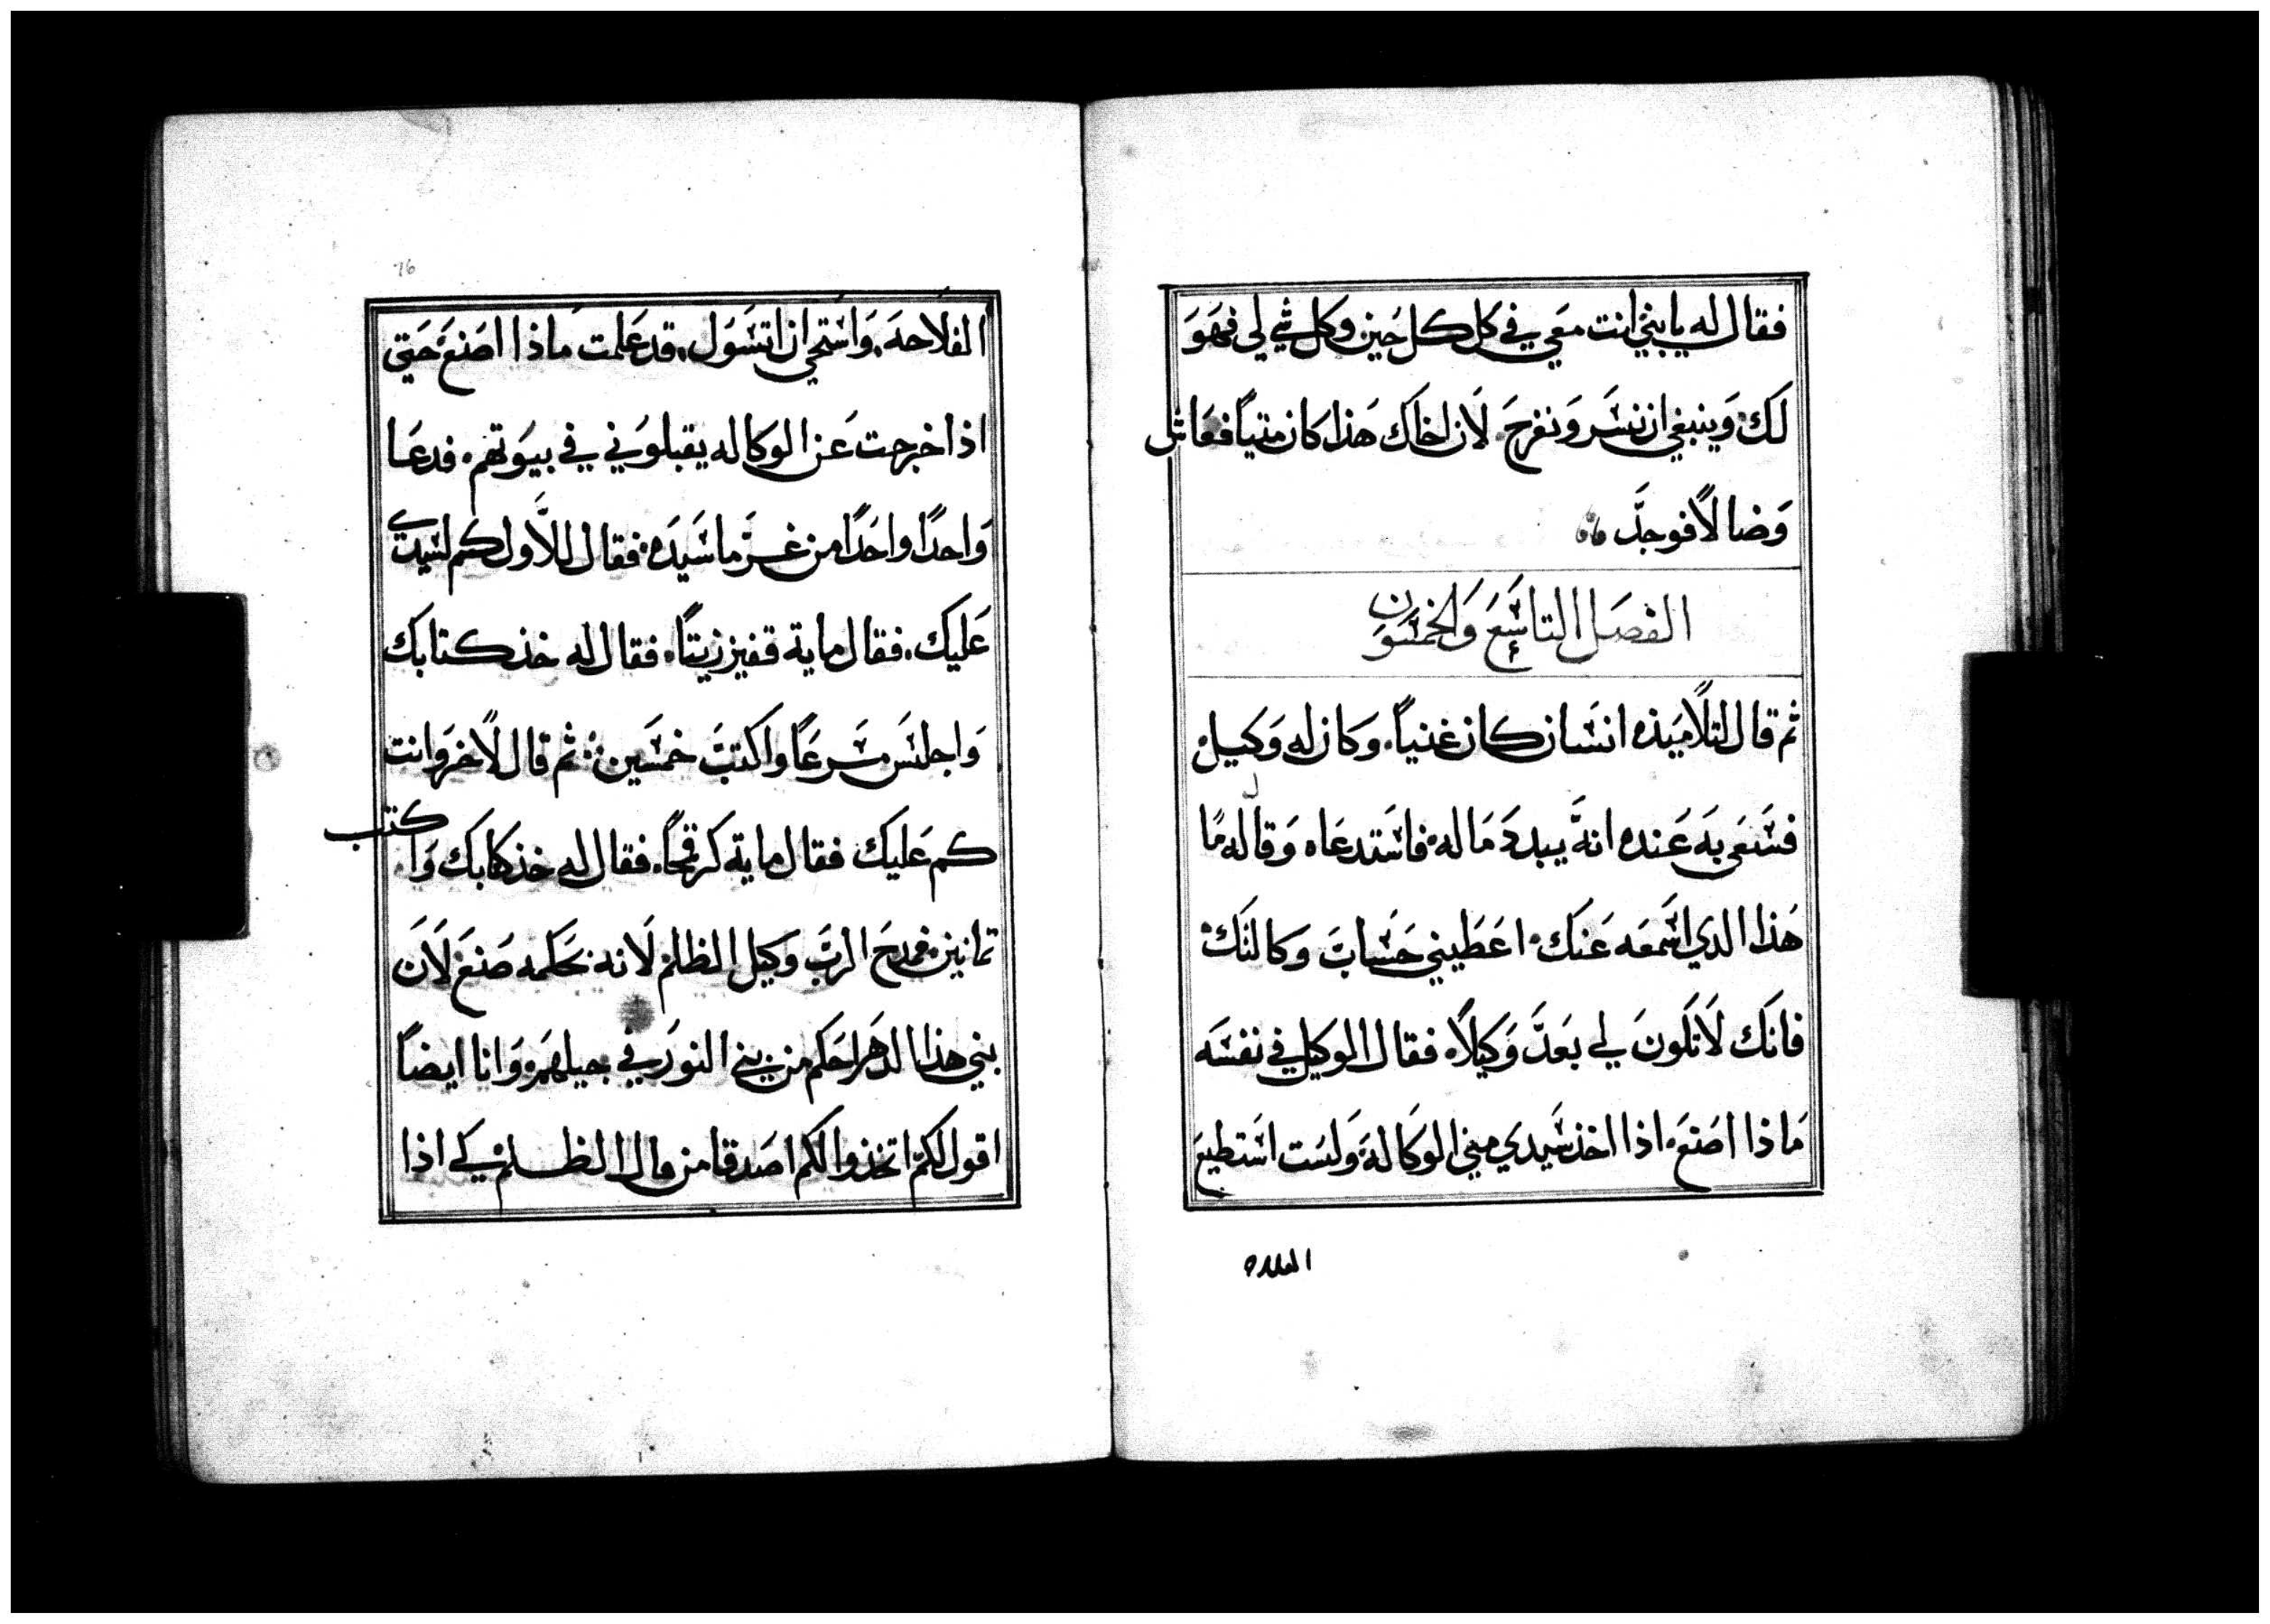 فقال له يا بني انت معي في كل كل حين وكل شي لي فهو
لك وينبغي ان نسر ونفرح لان اخاك هذا كان ميتاً فعاش
وضالاً فوجد
الفصل التاسع والخمسون
ثم قال لتلاميذه انسان كان غنياً وكان له وكيل
فسعى به عنده انه يبدد ماله فاستدعاه وقال له ما
هذا الدي اسمعه عنك اعطيني حساب وكالتك
فانك لا تكون لي بعد وكيلاً فقال الوكيل في نفسه
ماذا اصنع اذا اخذ سيدي مني الوكالة ولست استطيع
الفلاحه
76
الفلاحه واستحي ان اتسول قد علمت ماذا اصنع حتي
اذا خرجت عن الوكاله يقبلوني في بيوتهم فدعا
واحدًا واحدًا من غرما سيده فقال للاول كم لسيدي
عليك فقال ماية قفيز زيتاً فقال له خذ كتابك
واجلس مسرعاً واكتب خمسين ثم قال لاخر وانت
كم عليك فقال ماية كر قمحاً فقال له خذ كتابك واكتب
تمانين فمدح الرب وكيل الظلم لانه بحكمه صنع لان
بني هذا الدهر احكم من بني النور في جيلهم وانا ايضاً
اقول لكم اتخذوا لكم اصدقا من مال الظلم لكي اذا